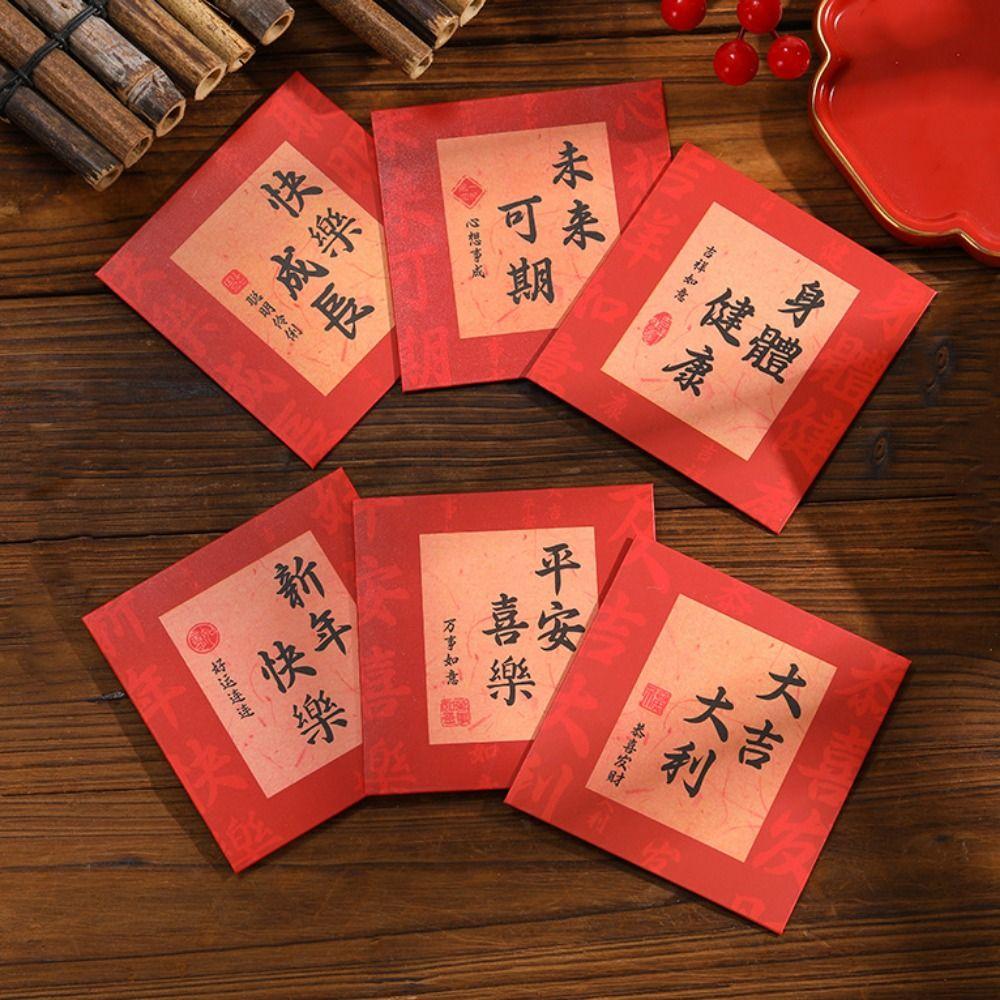 快樂
成長
聰明伶俐
未来
可期
心想事成
身體
健康
吉祥如意
新年
快樂
好运连连
平安
喜樂
万事如意
大吉
大利
恭喜发财